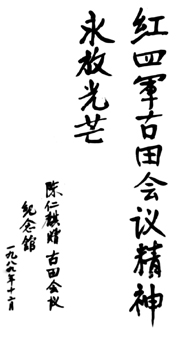 红四軍古田会议精神
永放光芒
陈仁麒赠古田会议
纪念館
一九八八年十二月